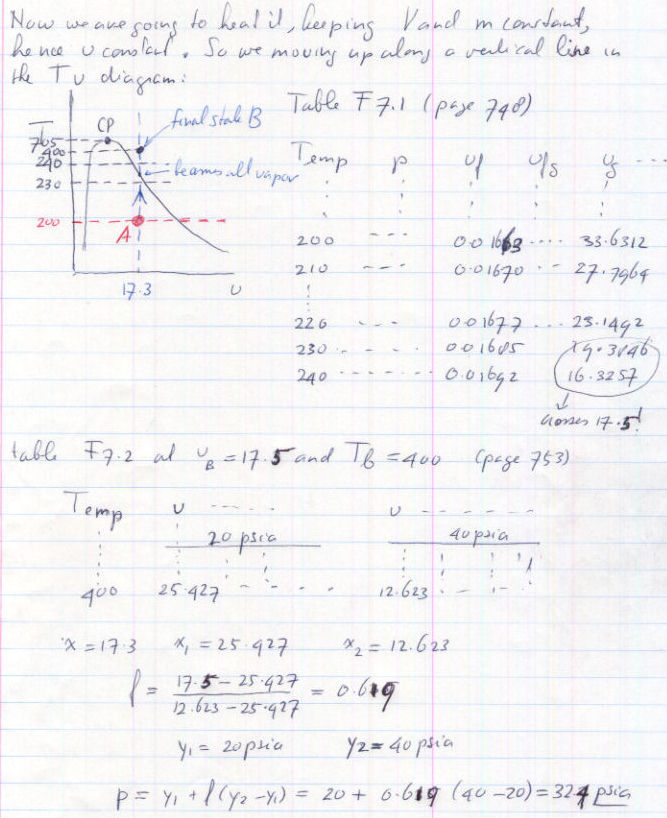 Now we are going to heat it, keeping V and m constant,
hence v constant. So we moving up along a vertical line in
the Tv diagram:
Table F7.1 (page 748)
T
CP
final state B
705
400
240
230
becomes all vapor
200
A
17.3
v
Temp p vf vfg vg ...
200 ---- 0.01663 .... 33.6312
210 --- 0.01670 .. 27.7964
220 --- 0.01677 ... 23.1492
230 --- 0.01685 19.3846
240 ------- 0.01692 16.3257
crosses 17.5!
table F7.2 at vB = 17.5 and TB = 400 (page 753)
Temp v ---- v ------
20 psia 40 psia
400 25.427 - - - 12.623 - - -
x = 17.3 x1 = 25.427 x2 = 12.623
f = 17.5 - 25.427
12.623 - 25.427
= 0.619
y1 = 20 psia y2 = 40 psia
p = y1 + f (y2 - y1) = 20 + 0.619 (40 - 20) = 32.4 psia